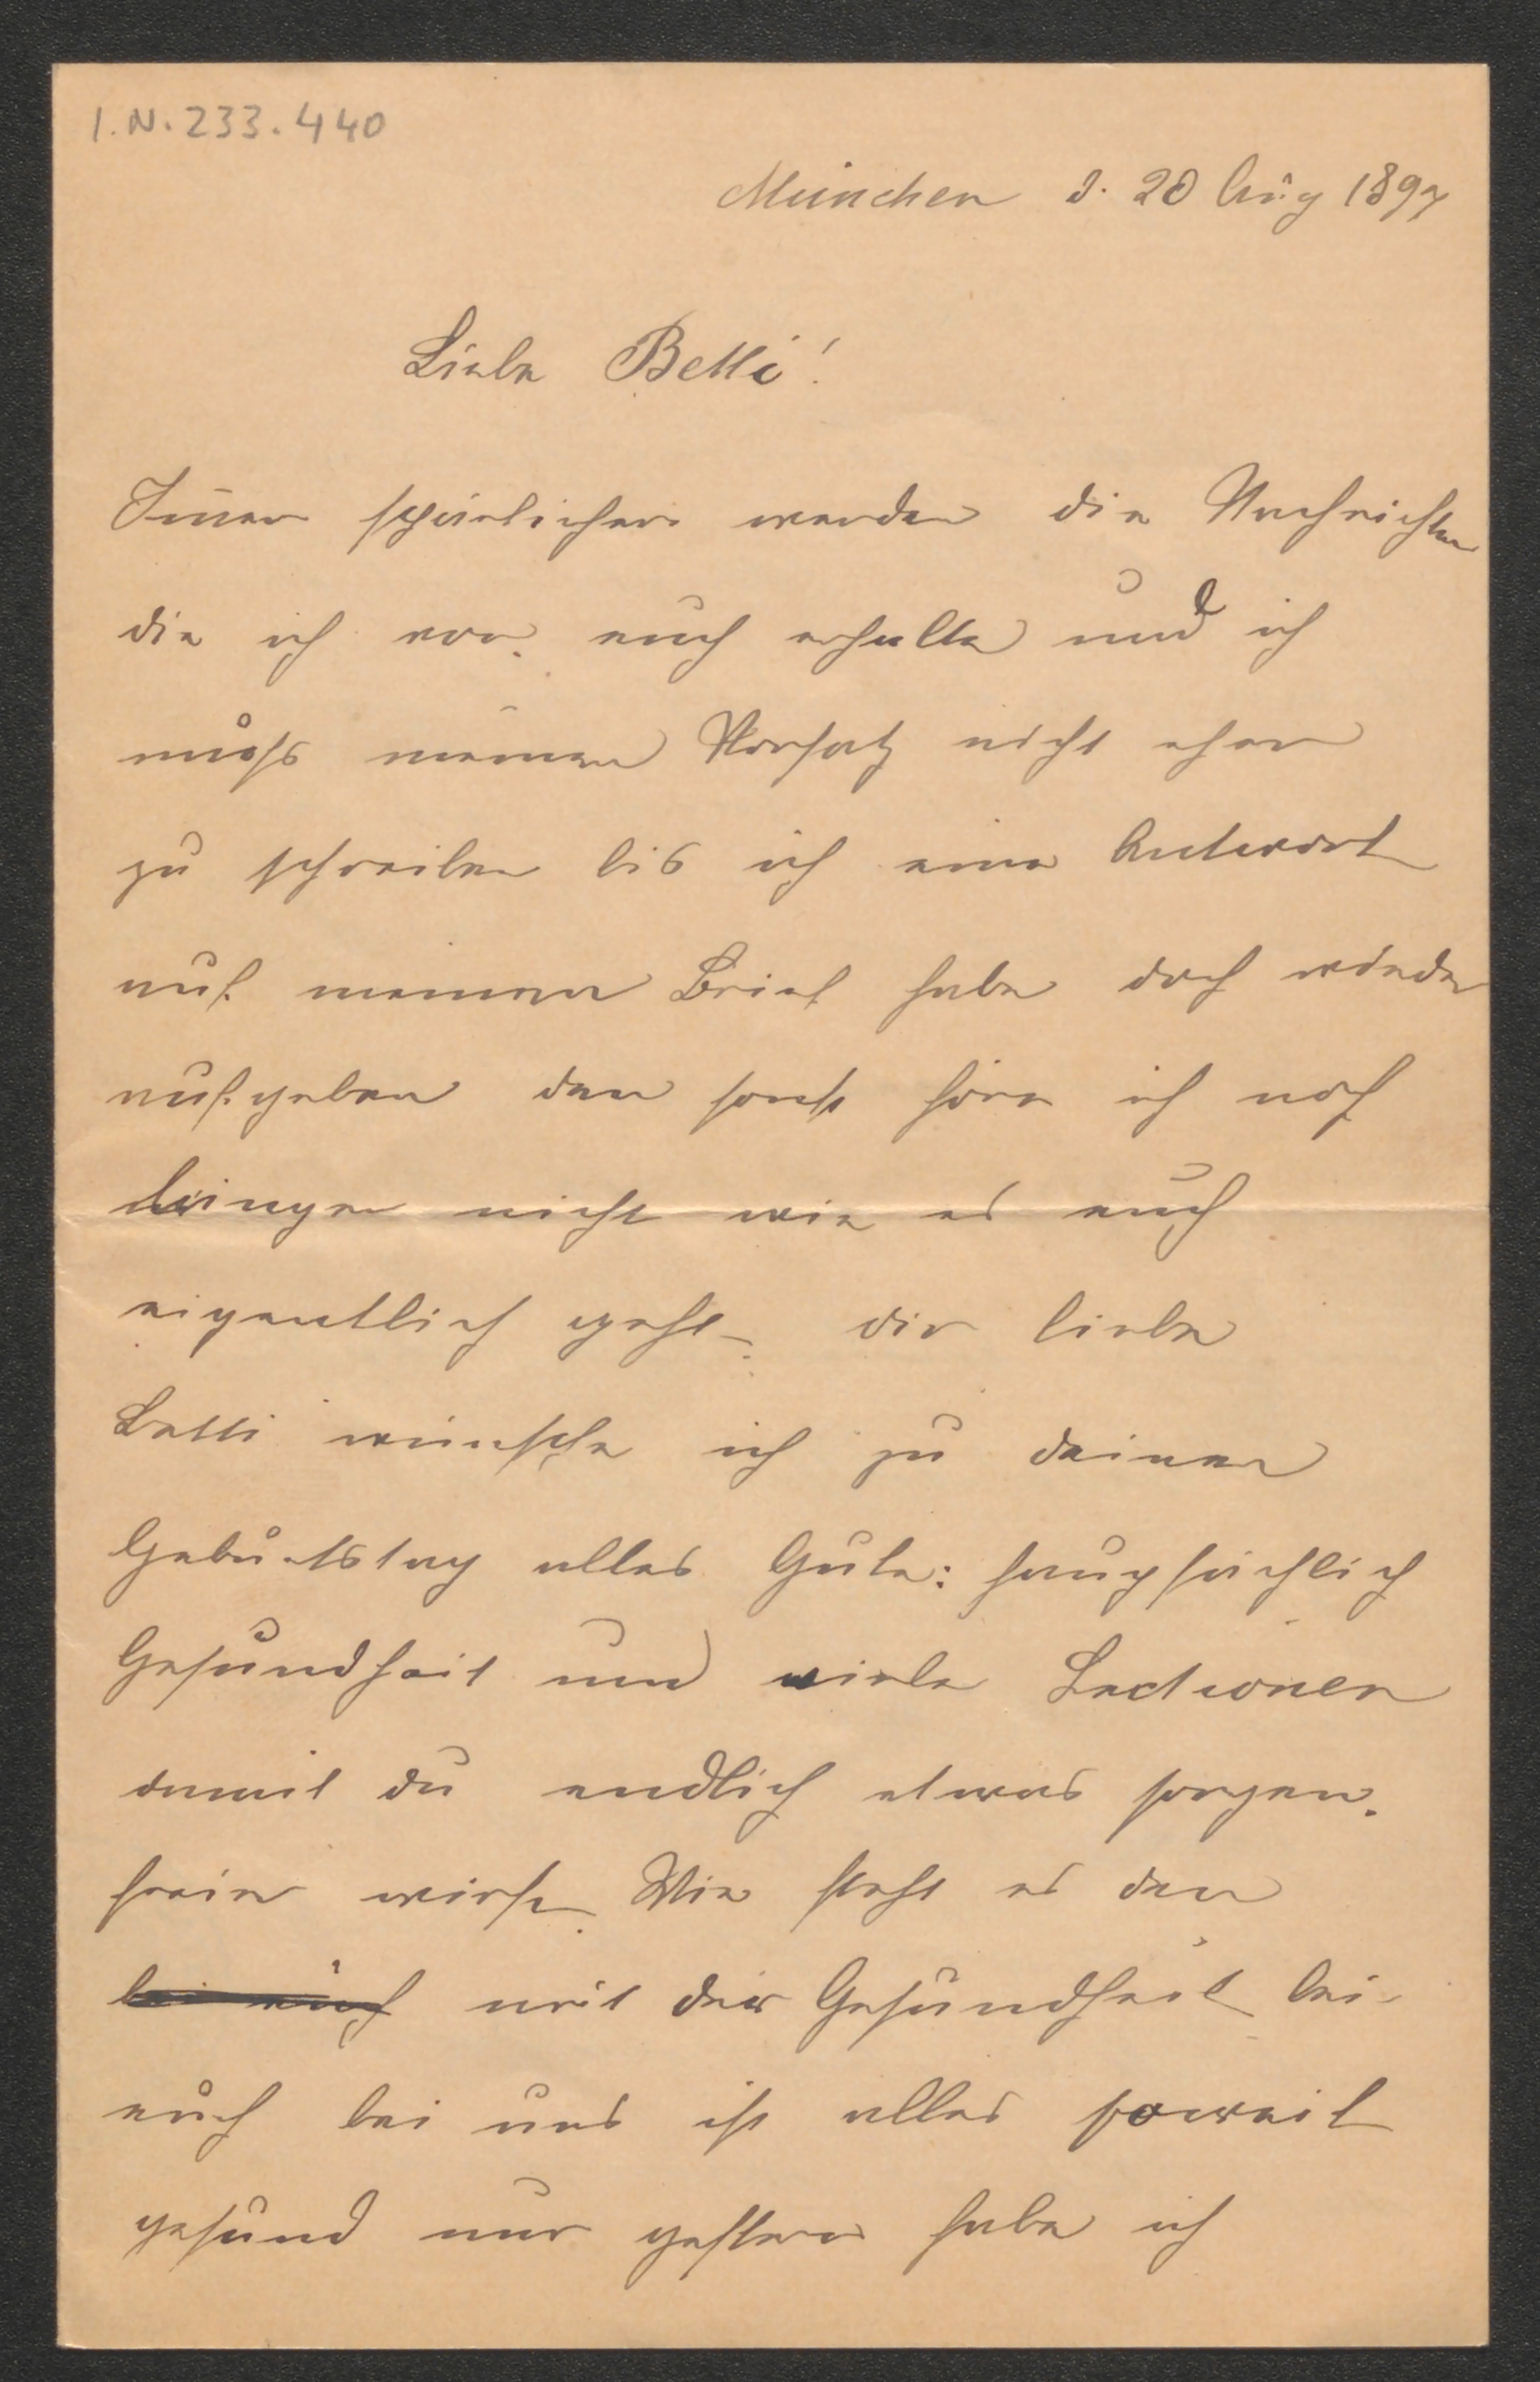 I.N. 233.440
München d. 20 Aug 1897
Liebe Betti!
Im̄er spärlicher werden die Nachrichten
die ich von euch erhalte und ich
muß meinen Vorsatz nicht eher
zu schreiben bis ich eine Antwort
auf meinen Brief habe doch wieder
aufgeben den sonst höre ich noch
länger nicht wie es euch
eigentlich geht. dir liebe
Betti wünsche ich zu deinen
Geburtstag alles Gute: haupsächlich
Gesundheit und viele Lectionen
damit du endlich etwas sorgen-
freier wirst. Wie steht es den
bei euch mit der Gesundheit bei
euch bei uns ist alles soweit
gesund nur gestern habe ich